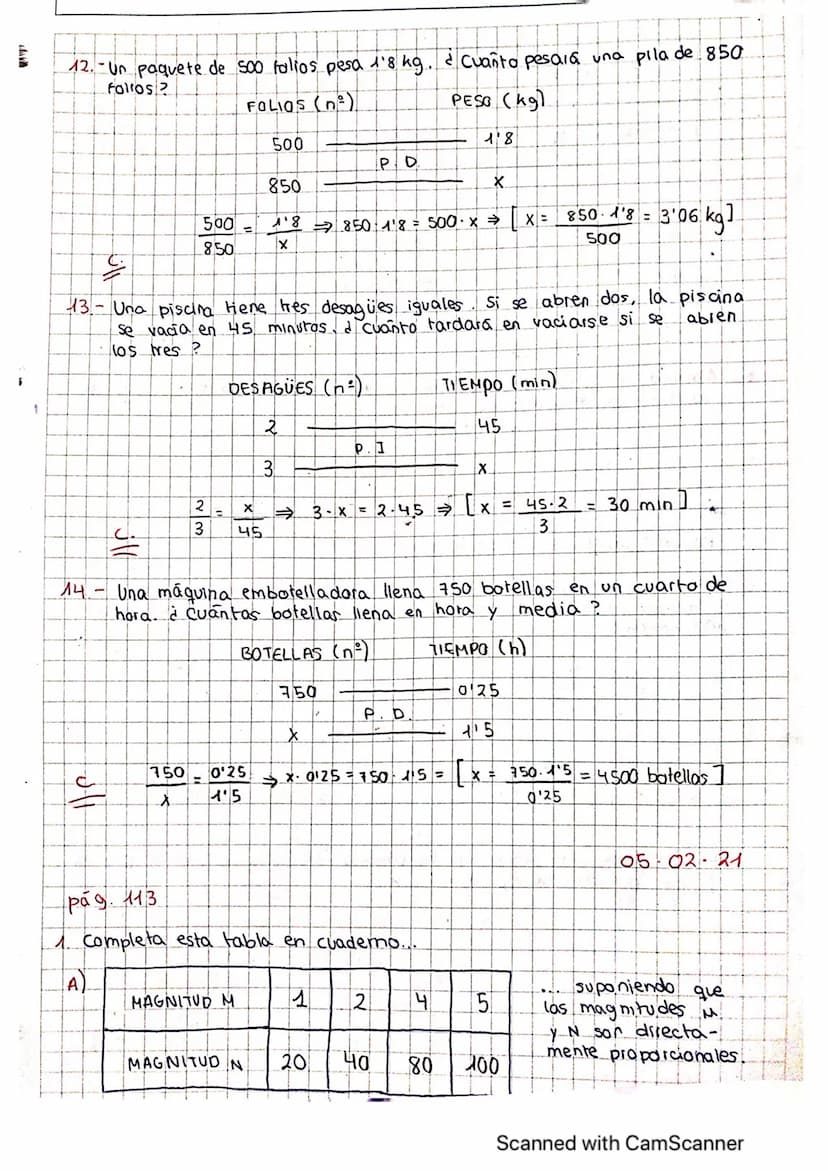 12.- Un paquete de 500 folios pesa 1'8 kg. ¿ Cuánto pesará una pila de 850
folios ?
FOLIOS (nº) PESO (kg)
500 1'8
P. D.
850 x
500/850 = 1'8/x ⇒ 850·1'8 = 500·x ⇒ [ x = 850·1'8/500 = 3'06 kg ]
C.
13.- Una piscina tiene tres desagües iguales. Si se abren dos, la piscina
se vacía en 45 minutos. ¿ cuánto tardará en vaciarse si se abren
los tres ?
DESAGÜES (nº) TIEMPO (min)
2 45
P. I
3 x
2/3 = x/45 ⇒ 3·x = 2·45 ⇒ [ x = 45·2/3 = 30 min ]
C.
14.- Una máquina embotelladora llena 750 botellas en un cuarto de
hora. ¿ cuántas botellas llena en hora y media ?
BOTELLAS (nº) TIEMPO (h)
750 0'25
P. D.
x 1'5
C 750/x = 0'25/1'5 ⇒ x·0'25 = 750·1'5 = [ x = 750·1'5/0'25 = 4500 botellas ]
05·02·21
pág. 113
1. Completa esta tabla en cuaderno...
A)
MAGNITUD M 1 2 4 5
MAGNITUD N 20 40 80 100
... suponiendo que
las magnitudes M
y N son directa-
mente proporcionales.
Scanned with CamScanner